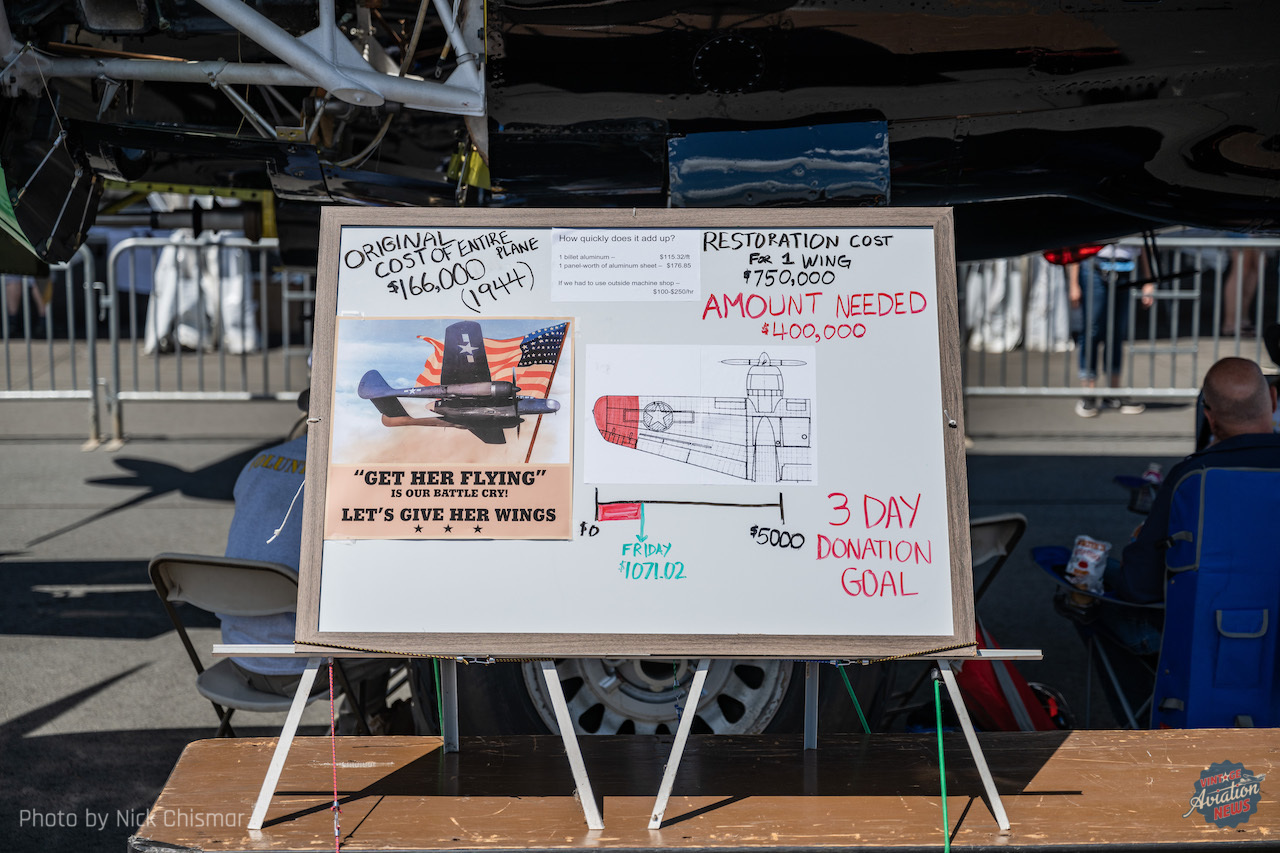 ORIGINAL
COST OF ENTIRE
PLANE
$166,000
(1944)
How quickly does it add up?
1 billet aluminum – $115.32/ft
1 panel-worth of aluminum sheet – $176.85
If we had to use outside machine shop –
$100-$250/hr
RESTORATION COST
FOR 1 WING
$750,000
AMOUNT NEEDED
$400,000
"GET HER FLYING"
IS OUR BATTLE CRY!
LET'S GIVE HER WINGS
$0
$5000
FRIDAY
$1071.02
3 DAY
DONATION
GOAL
Photo by Nick Chismar
VINTAGE
Aviation
NEWS